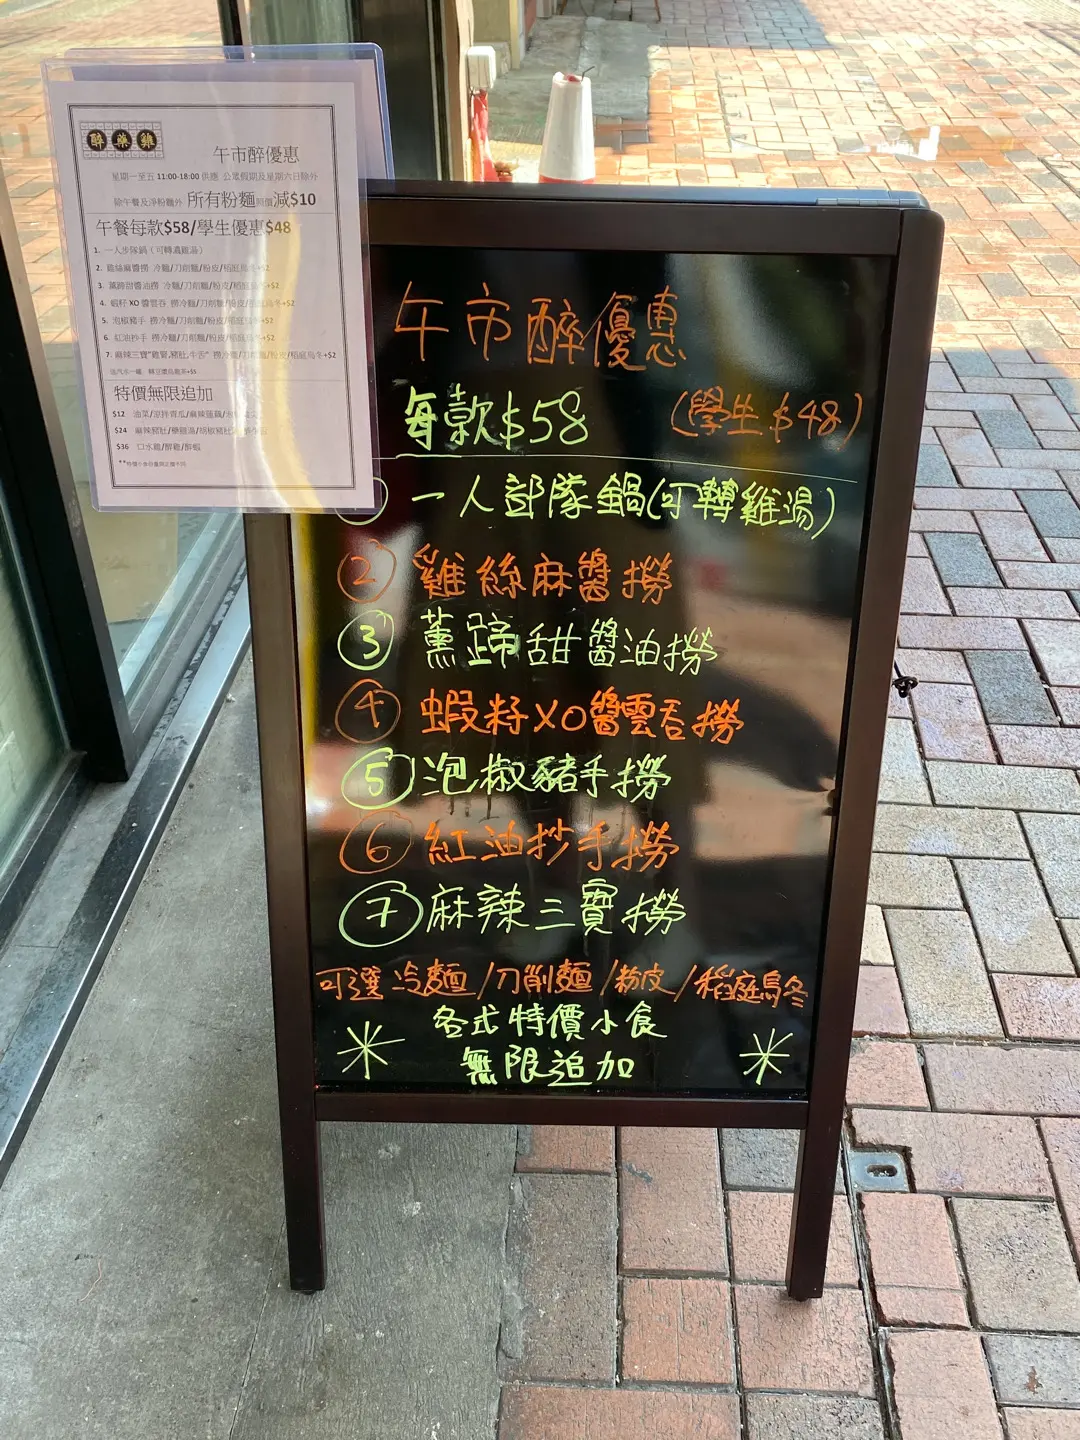 醉藥雞
午市醉優惠
星期一至五 11:00-18:00 供應 公眾假期及星期六日除外
除午餐及淨粉麵外 所有粉麵照價減$10
午餐每款$58/學生優惠$48
1. 一人步隊鍋(可轉濃雞湯)
2. 雞絲麻醬撈 冷麵/刀削麵/粉皮/稻庭烏冬+$2
3. 薰蹄甜醬油撈 冷麵/刀削麵/粉皮/稻庭烏冬+$2
4. 蝦籽 XO 醬雲吞 撈冷麵/刀削麵/粉皮/稻庭烏冬+$2
5. 泡椒豬手 撈冷麵/刀削麵/粉皮/稻庭烏冬+$2
6. 紅油抄手 撈冷麵/刀削麵/粉皮/稻庭烏冬+$2
7. 麻辣三寶"雞腎,豬肚,牛舌" 撈冷麵/刀削麵/粉皮/稻庭烏冬+$2
特價無限追加
$12 油菜/涼拌青瓜/麻辣蓮藕
$24 麻辣豬肚
$36 口水雞/醉雞/醉蝦
午市醉優惠
每款$58 (學生$48)
一人部隊鍋(可轉雞湯)
② 雞絲麻醬撈
③ 薰蹄甜醬油撈
④ 蝦籽XO醬雲吞撈
⑤ 泡椒豬手撈
⑥ 紅油抄手撈
⑦ 麻辣三寶撈
可選 冷麵/刀削麵/粉皮/稻庭烏冬
各式特價小食
無限追加